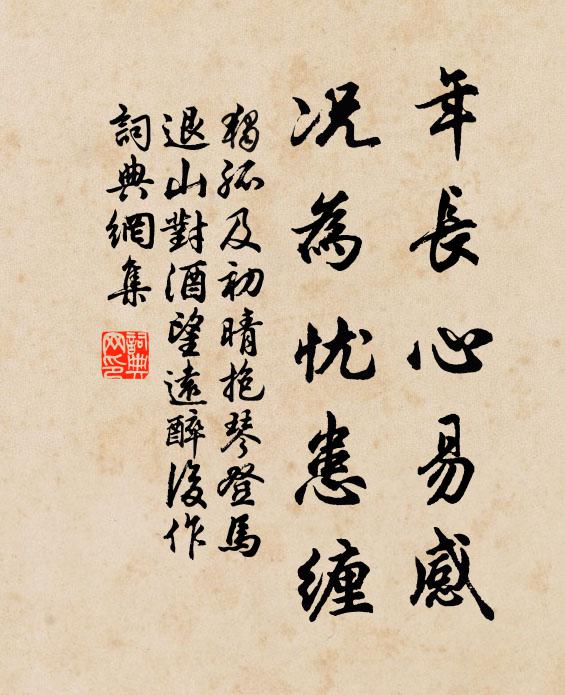 年長心易感
况為忧患纏
獨孤及初晴抱琴登馬
退山對酒望遠醉後作
詞典網集
詞典
网印